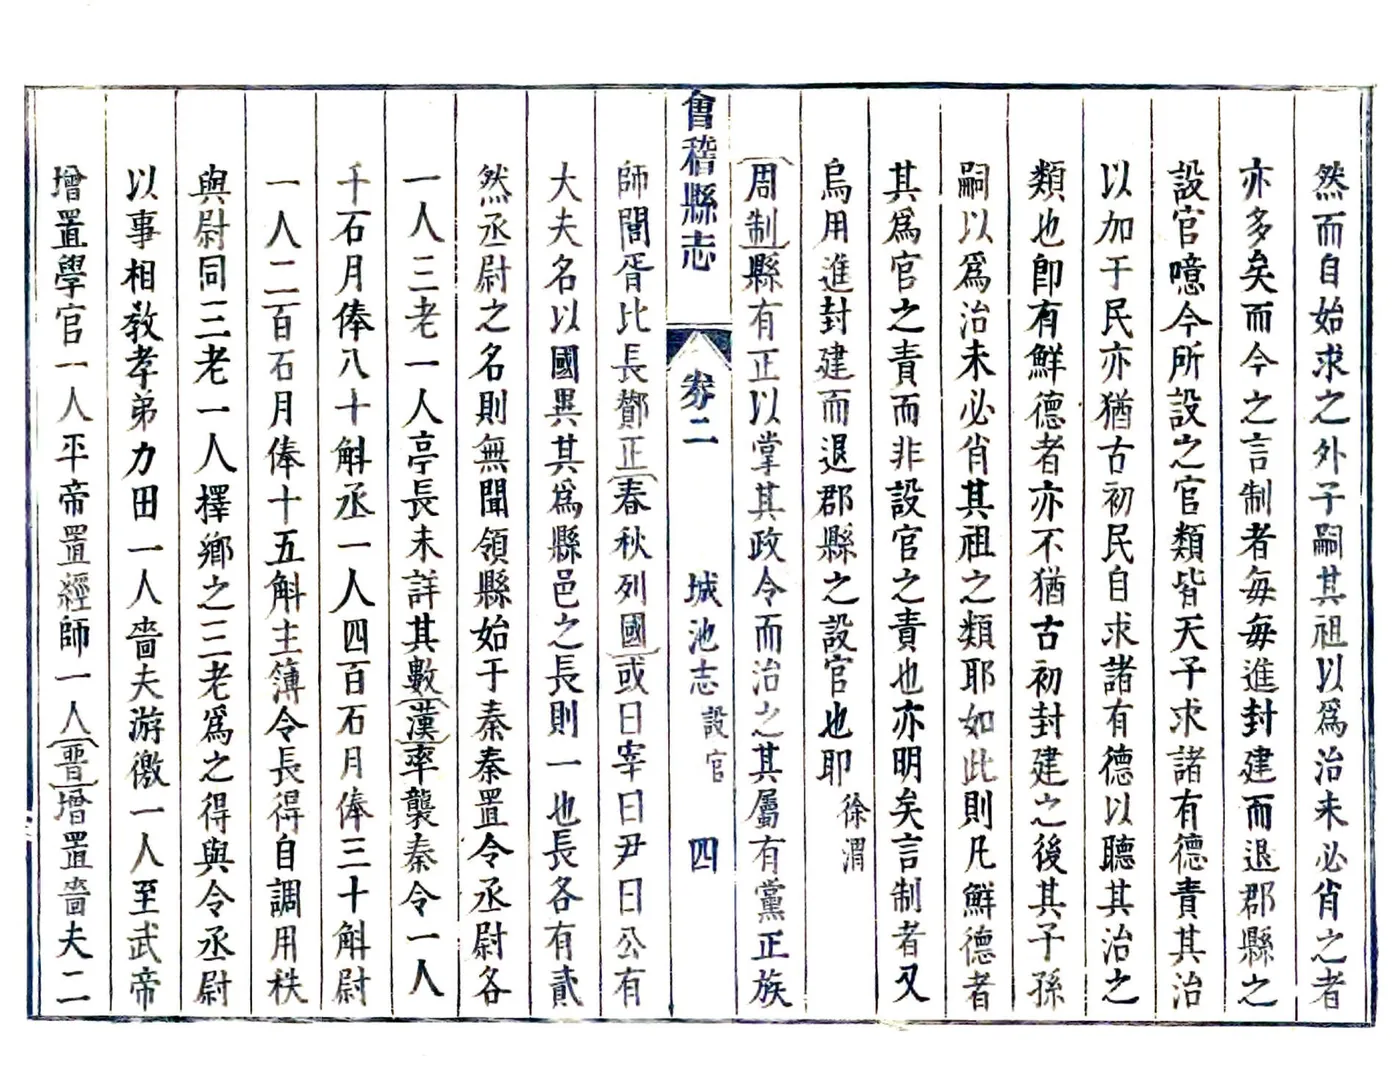 然而自始求之外子嗣其祖以爲治未必肖之者
亦多矣而今之言制者每每進封建而退郡縣之
設官噫今所設之官類皆天子求諸有德責其治
以加于民亦猶古初民自求諸有德以聽其治之
類也卽有鮮德者亦不猶古初封建之後其子孫
嗣以爲治未必肖其祖之類耶如此則凡鮮德者
其爲官之責而非設官之責也亦明矣言制者又
烏用進封建而退郡縣之設官也耶徐渭
周制縣有正以掌其政令而治之其屬有黨正族
會稽縣志 卷二 城池志 設官 四
師閭胥比長酇正春秋列國或曰宰曰尹曰公有
大夫名以國異其爲縣邑之長則一也長各有貳
然丞尉之名則無聞領縣始于秦秦置令丞尉各
一人三老一人亭長未詳其數漢率襲秦令一人
千石月俸八十斛丞一人四百石月俸三十斛尉
一人二百石月俸十五斛主簿令長得自調用秩
與尉同三老一人擇鄉之三老爲之得與令丞尉
以事相敎孝弟力田一人嗇夫游徼一人至武帝
增置學官一人平帝置經師一人晉增置嗇夫二